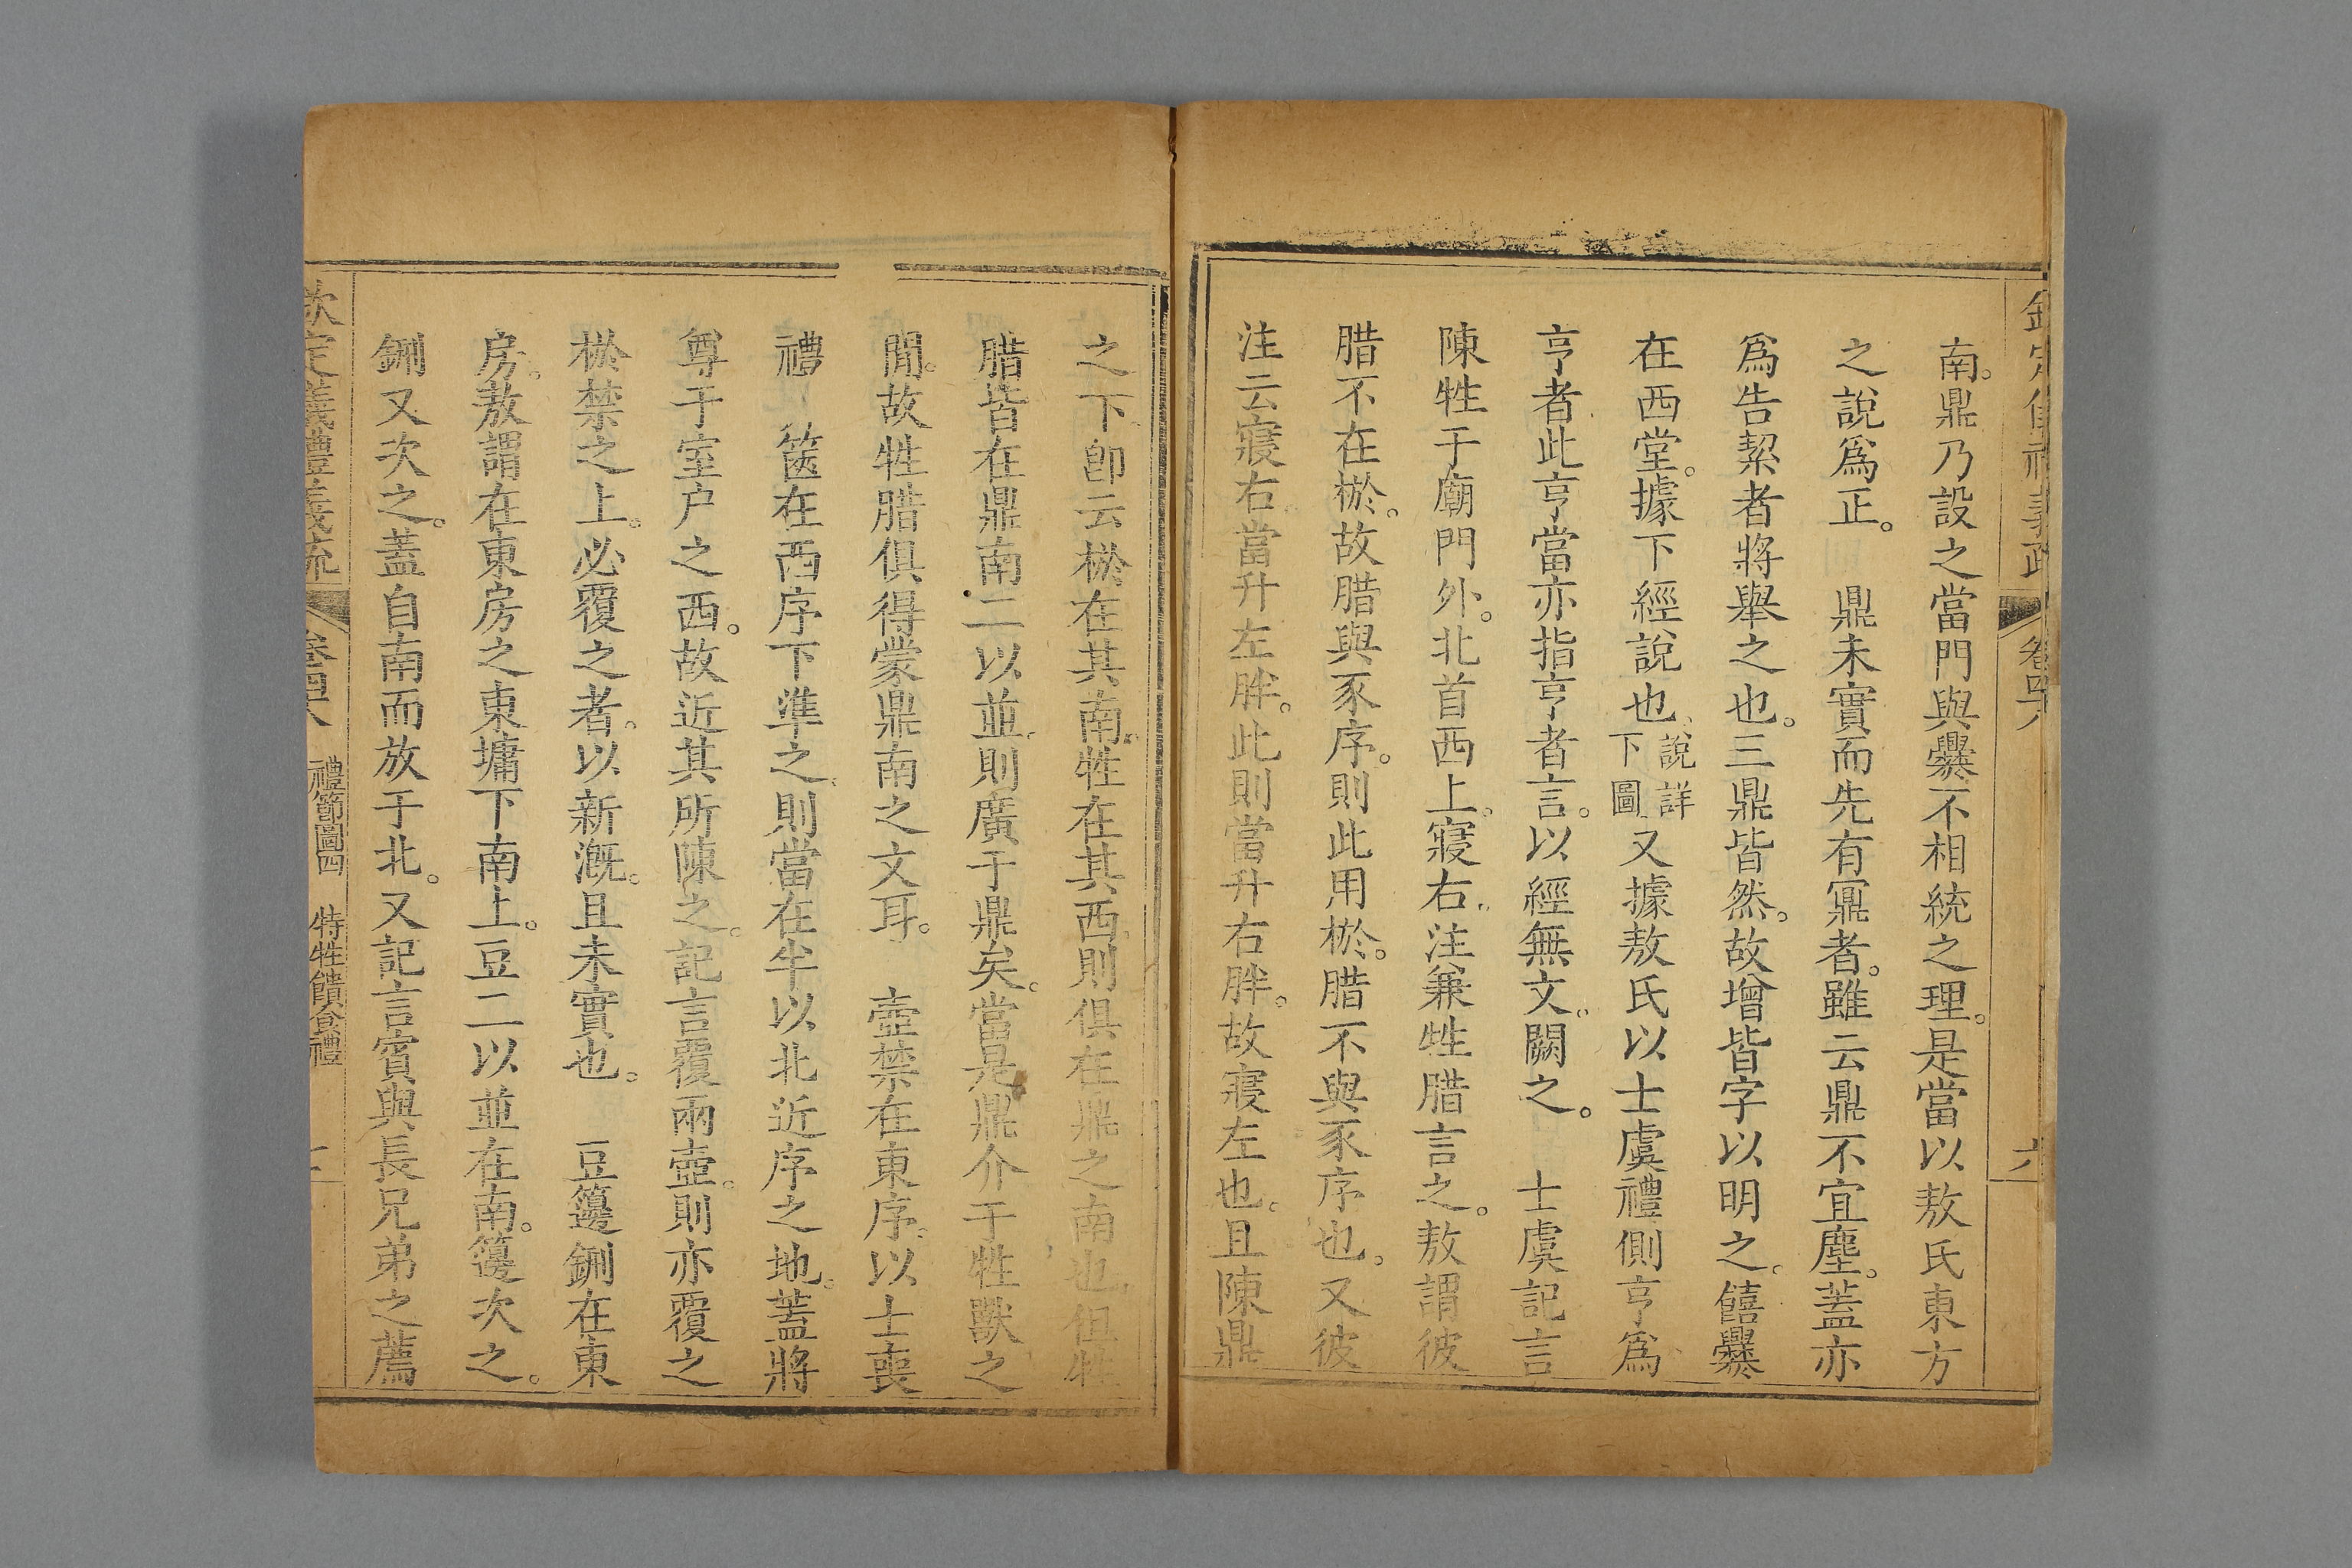 欽定儀禮義疏 卷四十八 六
南。鼎乃設之當門與爨不相統之理。是當以敖氏東方
之說爲正。 鼎未實而先有鼏者。雖云鼎不宜塵。蓋亦
爲告絜者將舉之也。三鼎皆然。故增皆字以明之。饎爨
在西堂。據下經說也、說詳下圖又據敖氏以士虞禮側亨爲
亨者此亨當亦指亨者言。以經無文。闕之。 士虞記言
陳牲于廟門外。北首西上。寢右、注兼牲腊言之。敖謂彼
腊不在棜。故腊與豕序。則此用棜。腊不與豕序也。又彼
注云寢右當升左胖。此則當升右胖。故寢左也。且陳鼎
之下、卽云棜在其南、牲在其西、則俱在鼎之南也、但牲
腊皆在鼎南、二以並、則廣于鼎矣。當是鼎介于牲獸之
閒。故牲腊俱得蒙鼎南之文耳。 壺禁在東序、以士喪
禮 篚在西序下準之、則當在半以北近序之地。蓋將
尊于室户之西。故近其所陳之。記言覆兩壺。則亦覆之
棜禁之上。必覆之者。以新漑。且未實也。 豆籩鉶在東
房。敖謂在東房之東墉下南上。豆二以並在南。籩次之。
鉶又次之。蓋自南而放于北。又記言賓與長兄弟之薦
欽定儀禮義疏 卷四十八 禮節圖四 特牲饋食禮